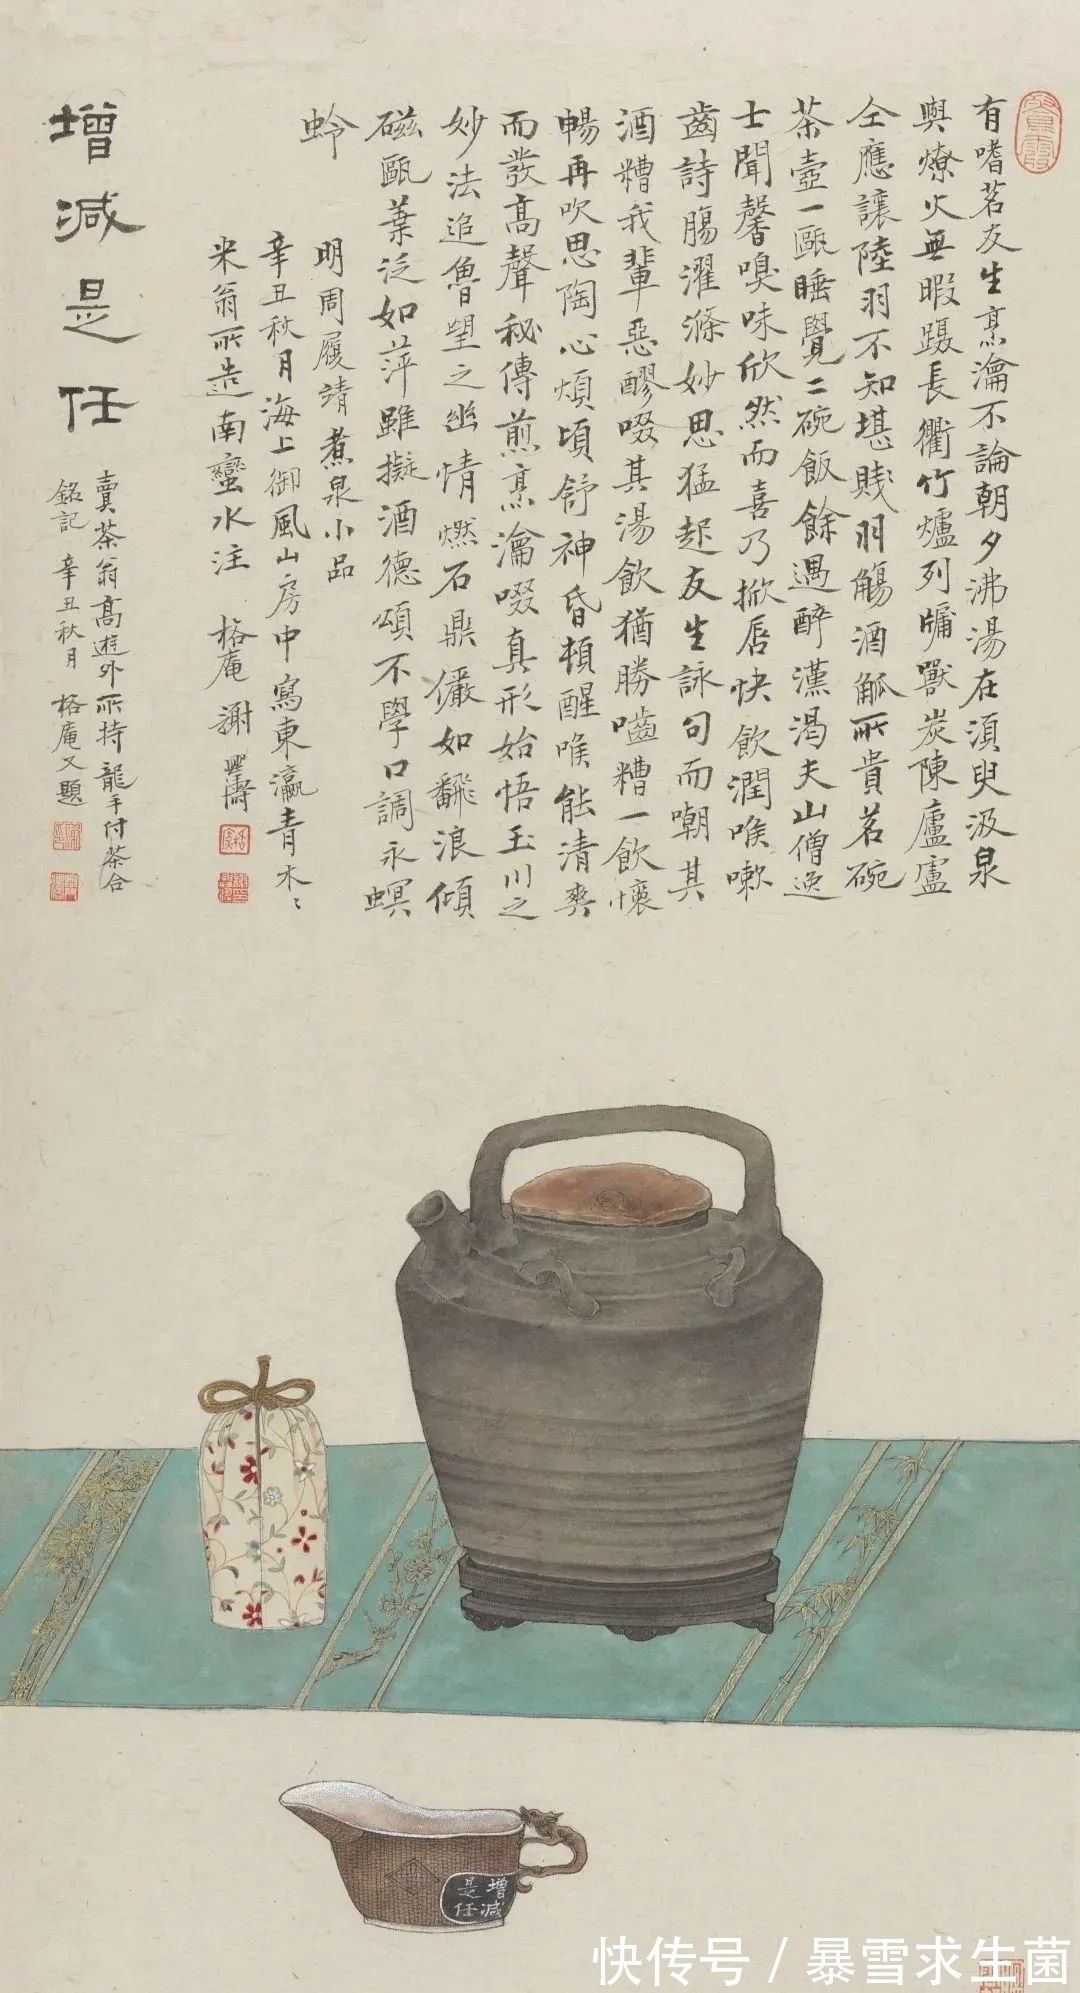 有嗜茗友生烹瀹不論朝夕沸湯在湏臾汲泉
與燎火無暇躡長衢竹爐列牖獸炭陳廬盧
仝應讓陸羽不知堪賤羽觴酒觚所貴茗碗
茶壺一甌睡覺二碗飯餘遇醉漢渴夫山僧逸
士聞馨嗅味欣然而喜乃掀唇快飲潤喉嗽
齒詩腸濯滌妙思猛起友生詠句而嘲其
酒糟我輩惡醪啜其湯飲猶勝嚙糟一飲懷
暢再吹思陶心煩頃舒神昏頓醒喉能清爽
而發高聲秘傳煎烹瀹啜真形始悟玉川之
妙法追魯望之幽情燃石鼎儼如翻浪傾
磁甌葉泛如萍雖擬酒德頌不學口調永螟
蛉
明周履靖煮泉小品
辛丑秋月海上御風山房中寫東瀛青木〻
米翁所造南蠻水注 格庵 謝
增減是任
賣茶翁高遊外所持龍手付茶合
銘記 辛丑秋月 格庵又題
增減
是任
快传号 / 暴雪求生菌